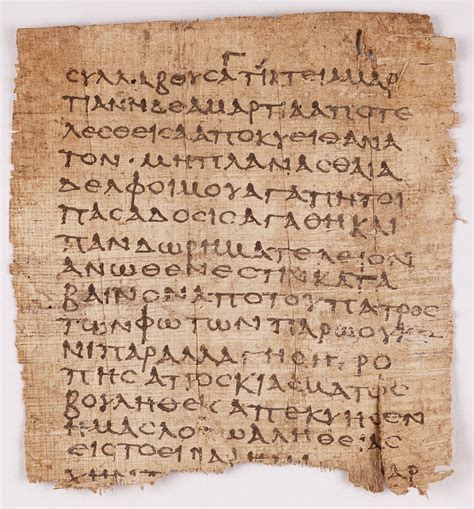 ϹΥΛΛΑΒΟΥϹΑΤΙΚΤΕΙΑΜΑΡ
ΤΙΑΝΗΔΕΑΜΑΡΤΙΑΑΠΟΤΕ
ΛΕϹΘΕΙϹΑΑΠΟΚΥΕΙΘΑΝΑ
ΤΟΝ·ΜΗΠΛΑΝΑϹΘΑΙΑ
ΔΕΛΦΟΙΜΟΥΑΓΑΠΗΤΟΙ
ΠΑϹΑΔΟϹΙϹΑΓΑΘΗΚΑΙ
ΠΑΝΔΩΡΗΜΑΤΕΛΕΙΟΝ
ΑΝΩΘΕΝΕϹΤΙΝΚΑΤΑ
ΒΑΙΝΟΝΑΠΟΤΟΥΠΑΤΡΟϹ
ΤΩΝΦΩΤΩΝΠΑΡΩΟΥΚΕ
ΝΙΠΑΡΑΛΛΑΓΗϹΗΤΡΟ
ΠΗϹΑΠΟϹΚΙΑϹΜΑΤΟϹ
ΒΟΥΛΗΘΕΙϹΑΠΕΚΥΗϹΕΝ
ΗΜΑϹΛΟΓΩΑΛΗΘΕΙΑϹ
ΕΙϹΤΟΕΙΝΑΙΗΜ